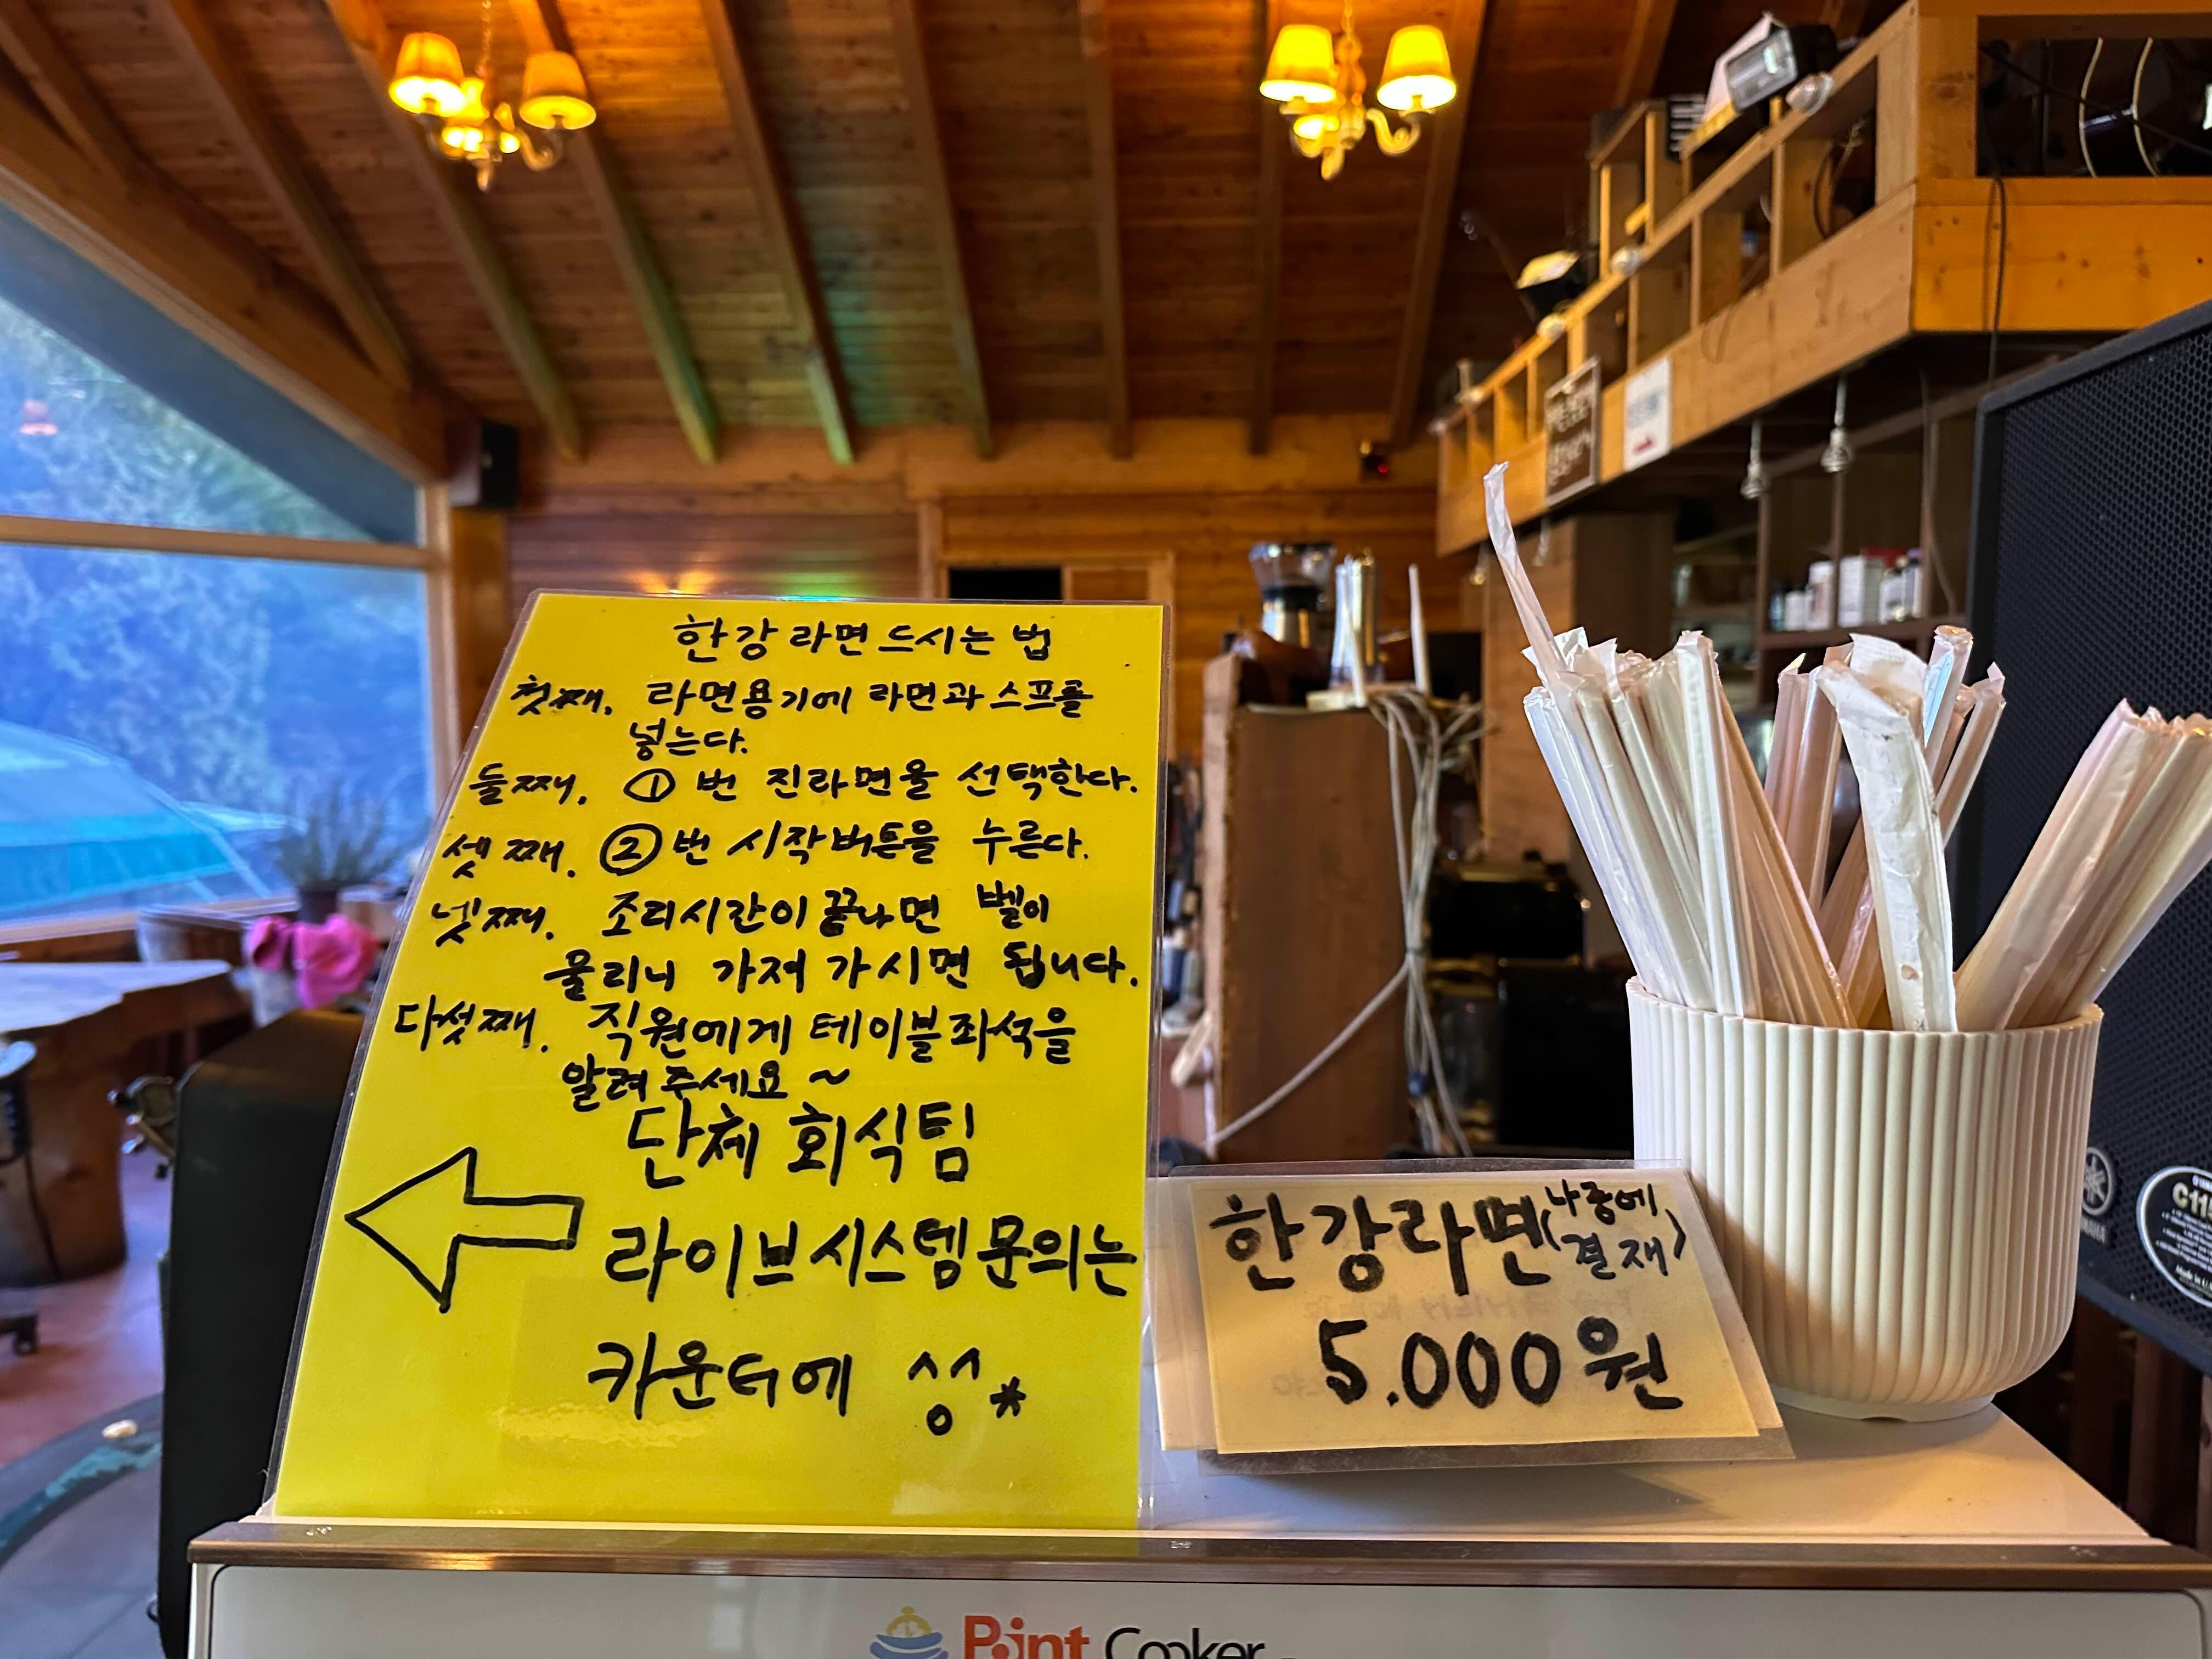 한강 라면 드시는 법
첫째. 라면용기에 라면과 스프를
넣는다.
둘째. ① 번 진라면을 선택한다.
셋째. ② 번 시작버튼을 누른다.
넷째. 조리시간이 끝나면 벨이
울리니 가져 가시면 됩니다.
다섯째. 직원에게 테이블좌석을
알려 주세요 ~
단체 회식팀
라이브시스템문의는
카운터에
한강라면(나중에
결재)
5.000원
Point Cooker